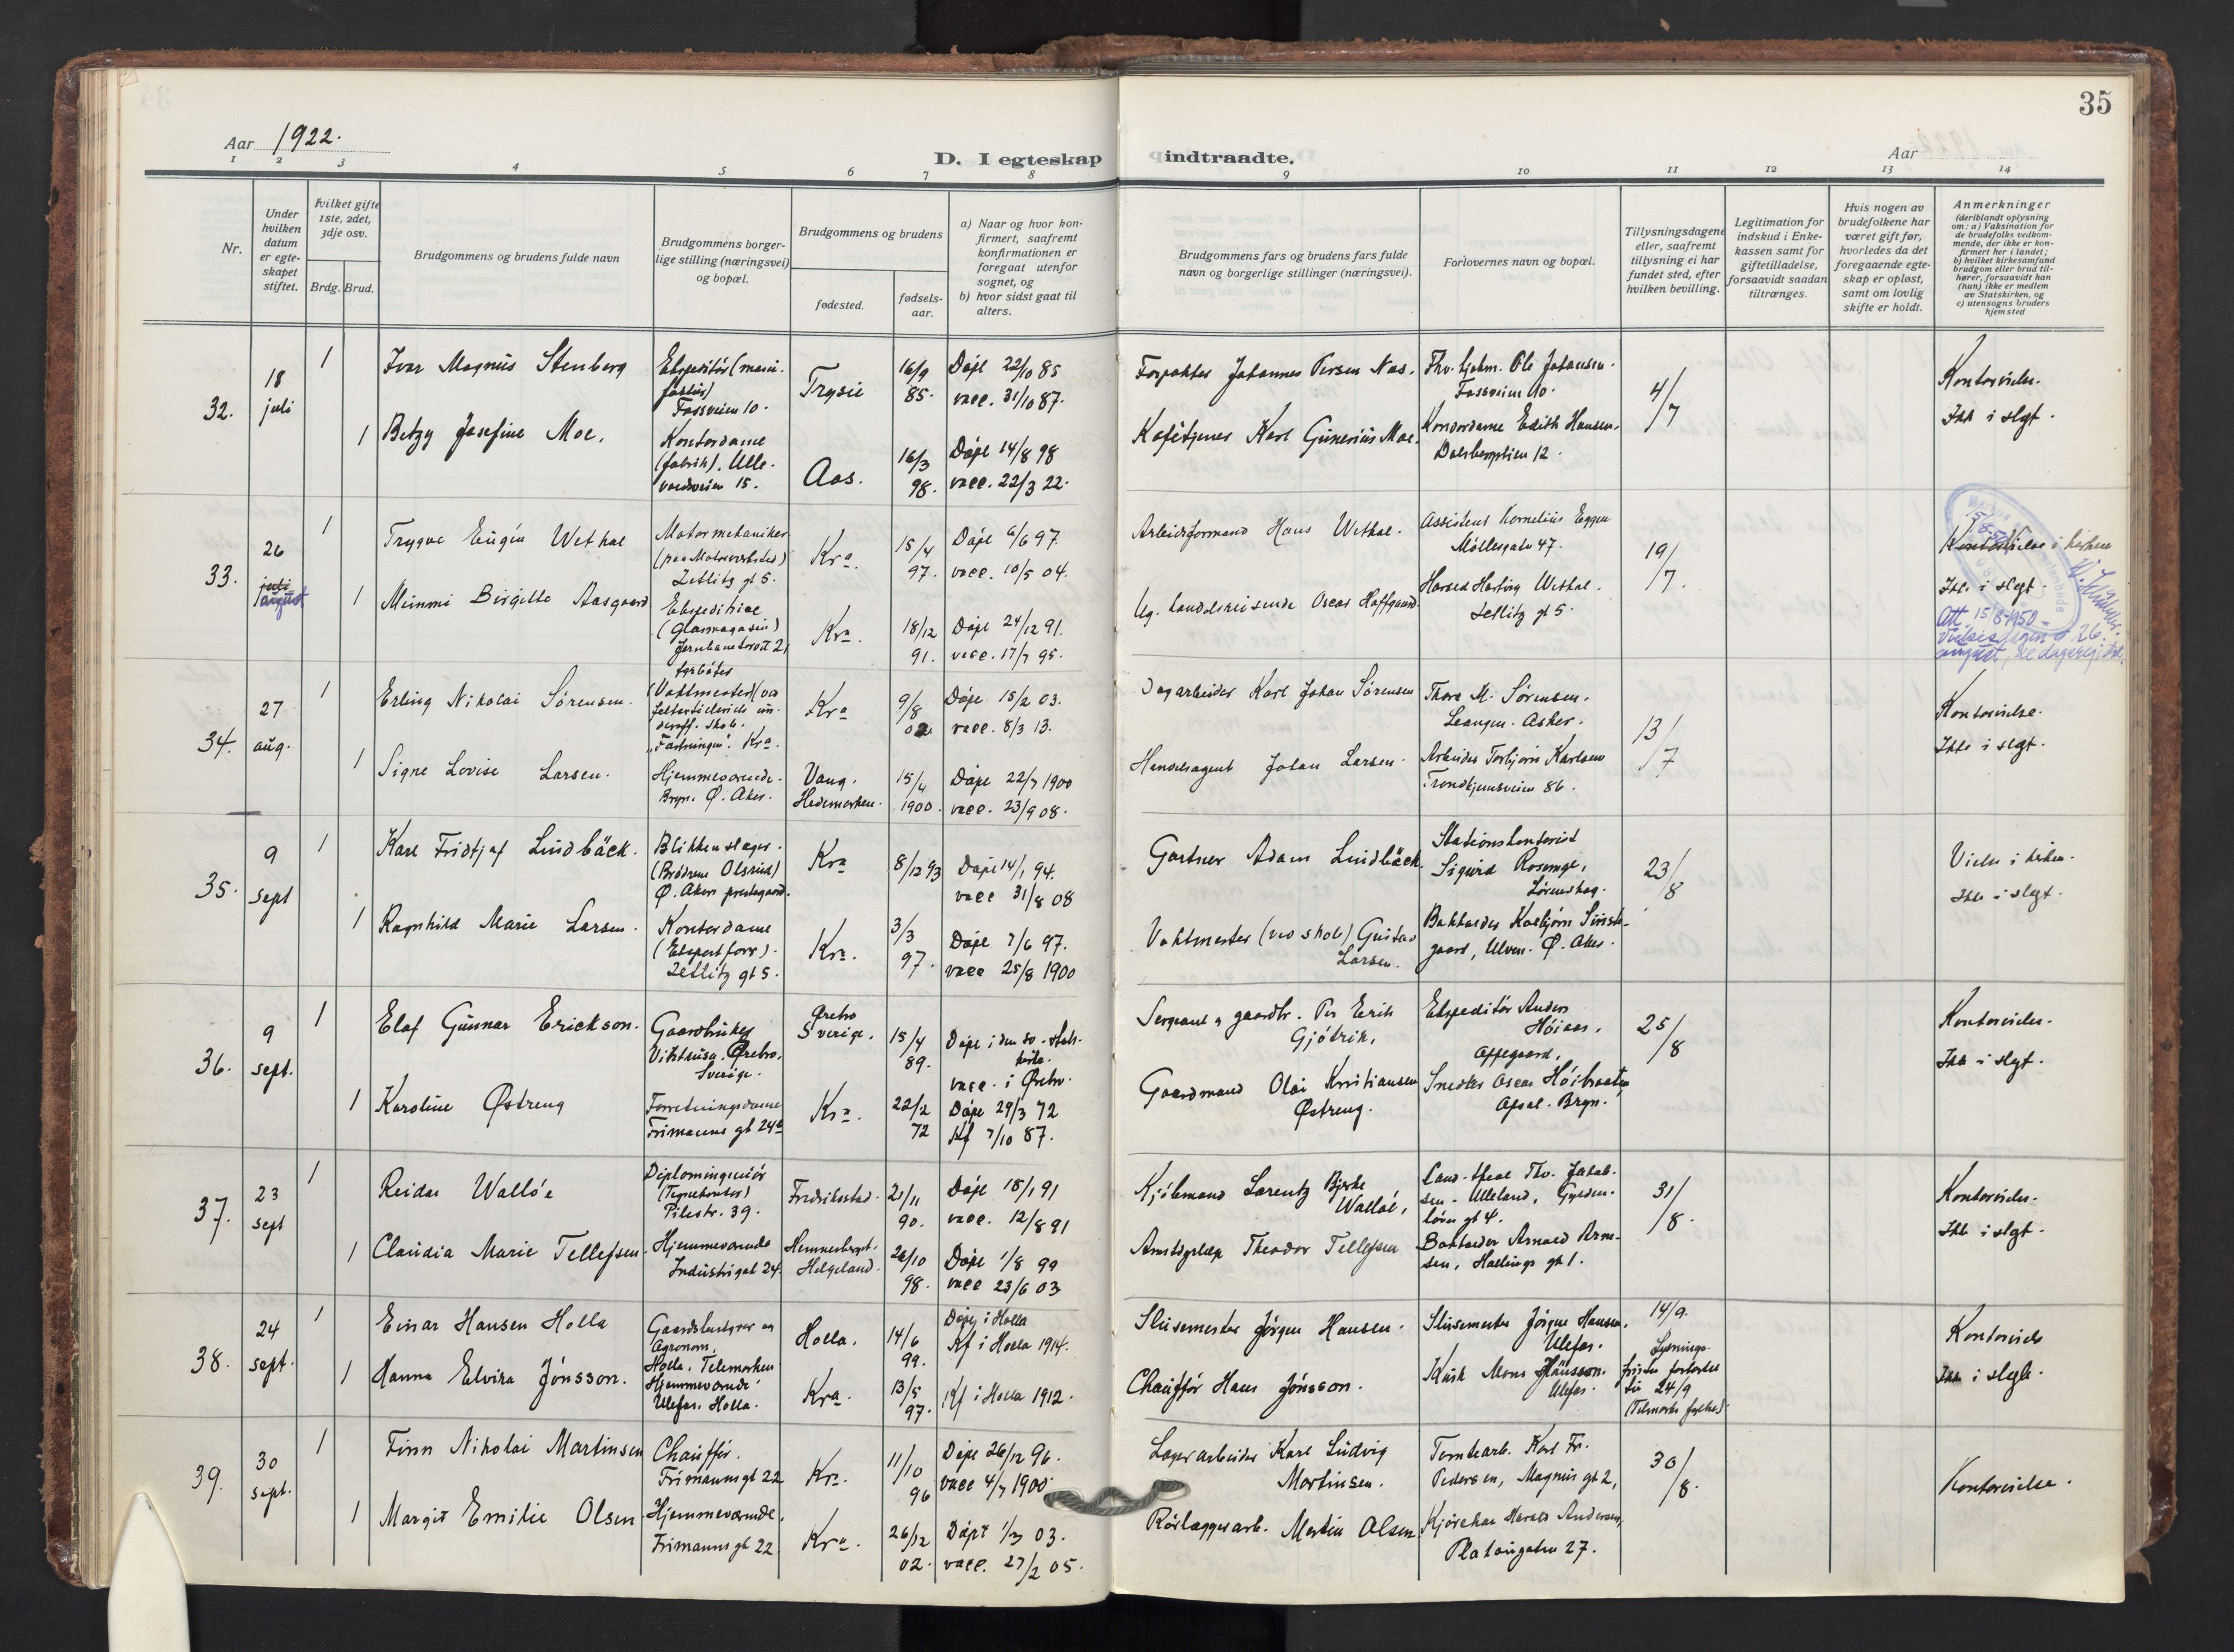 35
Aar 1922.
D. I egteskap indtraadte.
Aar
1 2 3 4 5 6 7 8 9 10 11 12 13 14
Nr.
Under
hvilken
datum
er egte-
skapet
stiftet.
hvilket gifte
1ste, 2det,
3dje osv.
Brdg. Brud.
Brudgommens og brudens fulde navn
Brudgommens borger-
lige stilling (næringsvei)
og bopæl.
Brudgommens og brudens
fødested.
fødsels-
aar.
a) Naar og hvor kon-
firmert, saafremt
konfirmationen er
foregaat utenfor
sognet, og
b) hvor sidst gaat til
alters.
Brudgommens fars og brudens fars fulde
navn og borgerlige stillinger (næringsvei).
Forlovernes navn og bopæl.
Tillysningsdagene
eller, saafremt
tillysning ei har
fundet sted, efter
hvilken bevilling.
Legitimation for
indskud i Enke-
kassen samt for
giftetilladelse,
forsaavidt saadan
tiltrænges.
Hvis nogen av
brudefolkene har
været gift før,
hvorledes da det
foregaaende egte-
skap er opløst,
samt om lovlig
skifte er holdt.
Anmerkninger
(deriblandt oplysning
om: a) Vaksination for
de brudefolks vedkom-
mende, der ikke er kon-
firmert her i landet;
b) hvilket kirkesamfund
brudgom eller brud til-
hører, forsaavidt han
(hun) ikke er medlem
av Statskirken, og
c) utensogns bruders
hjemsted
32.
18
juli
1
Ivar Magnus Stenberg
Ekspeditør (manu-
faktur)
Fossveien 10.
Trysil
16/9
85.
Døpt 22/10 85
vacc. 31/10 87.
Forpakter Johannes Persen Nas.
Fhv. hjulm. Ole Johansen.
Fossveien 10.
4/7
Kontorvielse.
Ikke i slegt.
1
Betzy Josefine Moe.
Kontordame
(fabrik). Ulle-
vaalsveien 15.
Aas.
16/3
98.
Døpt 14/8 98
vacc. 22/3 22.
Kafétjener Karl Gunerius Moe.
Kontordame Edith Hansen.
Dalsbergstien 12.
33.
26
juli
august
1
Trygve Eugén Wethal
Motormekaniker
(paa Motorverksted)
Zetlitz gt 5.
Kra.
15/4
97.
Døpt 6/6 97
vacc. 10/5 04.
Arbeidsformand Hans Wethal.
Assistent Kornelius Eggen
Møllergaten 47.
19/7.
Kontorvielse i kirken
Ikke i slegt.
Att. 15/8-1950
Vielsesdagen er 26.
august, se dagregistret.
1
Mimmi Birgitte Aasgaard
Ekspeditrice
(Glasmagasin)
Jernbanetorvet 2
Kra.
18/12
91.
Døpt 24/12 91.
vacc. 17/7 95.
Ug. handelsreisende Oscar Hoffgaard
Harald Hartvig Wethal.
Zetlitz gt 5.
34.
27
aug.
1
Erling Nikolai Sørensen.
(Vaktmester) (ved
feltartilleriets un-
deroff. skole.
"Fæstningen". Kra.
Kra
9/8
02.
Døpt 15/2 03.
vacc. 8/3 13.
Dagarbeider Karl Johan Sørensen
Thora M. Sørensen.
Leangen. Asker.
13/7
Kontorvielse.
Ikke i slegt.
1
Signe Lovise Larsen.
Hjemmeværende.
Bryn. Ø. Aker.
Vang.
Hedemarken.
15/4
1900.
Døpt 22/7 1900
vacc. 23/9 08.
Handelsagent Johan Larsen.
Arbeider Torbjørn Karlsen
Trondhjemsveien 86.
35.
9
sept
1
Karl Fridtjof Lindbäck.
Blikkenslager.
(Brødrene Olsrud)
Ø. Akers prestegaard.
Kra
8/12 93
Døpt 14/1 94.
vacc 31/8 08
Gartner Adam Lindbäck.
Stationskontorist
Sigurd Rosenge,
Lørenskog.
23/8
Vielse i kirken.
Ikke i slegt.
1
Ragnhild Marie Larsen.
Kontordame
(Eksportforr).
Zetlitz gt 5.
Kra.
3/3
97.
Døpt 7/6 97.
vacc 25/8 1900
Vaktmester (ved skole) Gustav
Larsen.
Bokholder Kolbjørn Sinsti-
gaard, Ulven. Ø. Aker.
36.
9
sept.
1
Elof Gunnar Erickson.
Gaardbruker
Vikthusa. Ørebro.
Sverige.
Ørebro
Sverige.
15/4
89.
Døpt i den sv. stats-
kirke.
vacc. i Ørebro.
Sergeant og gaardbr. Per Erik
Gjötrik,
Ekspeditør Anders
Höiaas,
Oppegaard.
25/8
Kontorvielse.
Ikke i slegt.
1
Karoline Østreng
Forretningsdame
Frimanns gt 24b
Kra.
22/2
72
Døpt 29/3 72
Kf 7/10 87.
Gaardmand Olai Kristiansen
Østreng.
Snedker Oscar Höibraaten
Opsal. Bryn.
37.
23
sept
1
Reidar Walløe
Diplomingeniør
(Tegnekontor)
Pilestr. 39.
Fredrikstad.
21/11
90.
Døpt 18/1 91
vacc. 12/8 91
Kjøbmand Lorentz Bjerke
Walløe,
Cand. theol Thv. Jakob-
sen-Ulleland, Gylden-
løves gt 4.
31/8.
Kontorvielse.
Ikke i slegt.
1
Claudia Marie Tellefsen
Hjemmeværende
Industrigat 24.
Hemnesberget.
Helgeland.
26/10
98.
Døpt 1/8 99
vacc 23/6 03
Amtsdyrlæge Theodor Tellefsen
Bokholder Arnold Arne-
sen, Hallings gt 1.
38.
24
sept.
1
Einar Hansen Holla
Gaardsbestyrer og
Agronom,
Holla. Telemarken
Holla.
14/6
99.
Døpt i Holla
Kf i Holla 1914.
Slusemester Jørgen Hansen.
Slusemester Jørgen Hansen.
Ulefos.
14/9.
Lysnings-
fristen forkortet
til 24/9
(Telemarks fylke).
Kontorvielse
Ikke i slegt.
1
Hanna Elvira Jónsson.
Hjemmeværende
Ulefos. Holla.
Kra.
13/5
97.
Kf i Holla 1912.
Chauffør Hans Jónsson.
Kusk Mons Hansson.
Ulefos.
39.
30
sept.
1
Finn Nikolai Martinsen
Chauffør.
Frimannsgt 22
Kra.
11/10
96
Døpt 26/12 96.
vacc 4/7 1900
Lagerarbeider Karl Ludvig
Martinsen.
Tomtearb. Karl Fr.
Pedersen, Magnus gt 2,
30/8.
Kontorvielse.
1
Margit Emilie Olsen
Hjemmeværende.
Frimannsgt 22
Kra.
26/12
02.
Døpt 1/3 03.
vacc. 27/2 05.
Rørlæggerarb. Martin Olsen
Kjørekar Harald Andersen,
Platougaten 27.